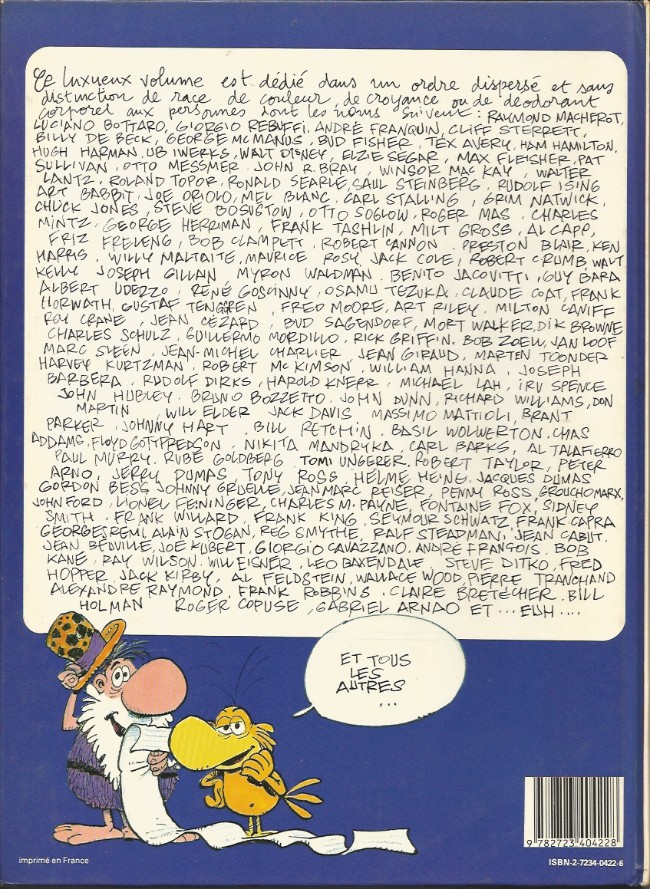 Ce luxueux volume est dédié dans un ordre dispersé et sans
distinction de race de couleur, de croyance ou de deodorant
corporel aux personnes dont les noms suivent : RAYMOND MACHEROT,
LUCIANO BOTTARO, GIORGIO REBUFFI. ANDRÉ FRANQUIN, CLIFF STERRETT,
BILLY DE BECK, GEORGE MCMANUS, BUD FISHER, TEX AVERY, HAM HAMILTON,
HUGH HARMAN, UB IWERKS, WALT DISNEY, ELZIE SEGAR, MAX FLEISHER, PAT
SULLIVAN, OTTO MESSMER, JOHN R. BRAY, WINSOR MAC KAY, WALTER
LANTZ, ROLAND TOPOR, RONALD SEARLE, SAUL STEINBERG, RUDOLF ISING
ART BABBIT, JOE ORIOLO, MEL BLANC, CARL STALLING, GRIM NATWICK,
CHUCK JONES, STEVE BOSUSTOW, OTTO SOGLOW, ROGER MAS, CHARLES
MINTZ, GEORGE HERRIMAN, FRANK TASHLIN, MILT GROSS, AL CAPP,
FRIZ FRELENG, BOB CLAMPETT, ROBERT CANNON, PRESTON BLAIR, KEN
HARRIS, WILLY MALTAITE, MAURICE ROSY, JACK COLE, ROBERT CRUMB, WALT
KELLY, JOSEPH GILLAIN, MYRON WALDMAN, BENITO JACOVITTI, GUY BARA
ALBERT UDERZO, RENÉ GOSCINNY, OSAMU TEZUKA, CLAUDE COAT, FRANK
HORWATH, GUSTAF TENGGREN, FRED MOORE, ART RILEY, MILTON CANIFF
ROY CRANE, JEAN CÉZARD, BUD SAGENDORF, MORT WALKER, DIK BROWNE
CHARLES SCHULZ, GUILLERMO MORDILLO, RICK GRIFFIN, BOB ZOELL, JAN LOOF
MARC SLEEN, JEAN-MICHEL CHARLIER, JEAN GIRAUD, MARTEN TOONDER
HARVEY KURTZMAN, ROBERT MC KIMSON, WILLIAM HANNA, JOSEPH
BARBERA, RUDOLF DIRKS, HAROLD KNERR, MICHAEL LAH, IRV SPENCE
JOHN HUBLEY, BRUNO BOZZETTO, JOHN DUNN, RICHARD WILLIAMS, DON
MARTIN, WILL ELDER JACK DAVIS MASSIMO MATTIOLI, BRANT
PARKER, JOHNNY HART, BILL RETCHIN, BASIL WOLWERTON, CHAS
ADDAMS, FLOYD GOTTFREDSON, NIKITA MANDRYKA, CARL BARKS, AL TALAFIERRO
PAUL MURRY, RUBE GOLDBERG, TOMI UNGERER, ROBERT TAYLOR, PETER
ARNO, JERRY DUMAS, TONY ROSS, HELME HEINE, JACQUES DUMAS
GORDON BESS, JOHNNY GRUELLE, JEAN MARC REISER, PENNY ROSS, GROUCHO MARX,
JOHN FORD, LIONEL FEININGER, CHARLES M. PAYNE, FONTAINE FOX, SIDNEY
SMITH, FRANK WILLARD, FRANK KING, SEYMOUR SCHWATZ, FRANK CAPRA
GEORGES REMI, ALAIN STOGAN, REG SMYTHE, RALF STEADMAN, JEAN CABUT,
JEAN BELVILLE, JOE KUBERT, GIORGIO CAVAZZANO, ANDRÉ FRANÇOIS, BOB
KANE, RAY WILSON, WILL EISNER, LEO BAXENDALE, STEVE DITKO, FRED
HOPPER, JACK KIRBY, AL FELDSTEIN, WALLACE WOOD, PIERRE TRANCHAND
ALEXANDRE RAYMOND, FRANK ROBBINS, CLAIRE BRETECHER, BILL
HOLMAN ROGER COPUSE, GABRIEL ARNAO ET ... EUH ....
ET TOUS
LES
AUTRES
...
9 782723 404228
imprimé en France
ISBN-2-7234-0422-6